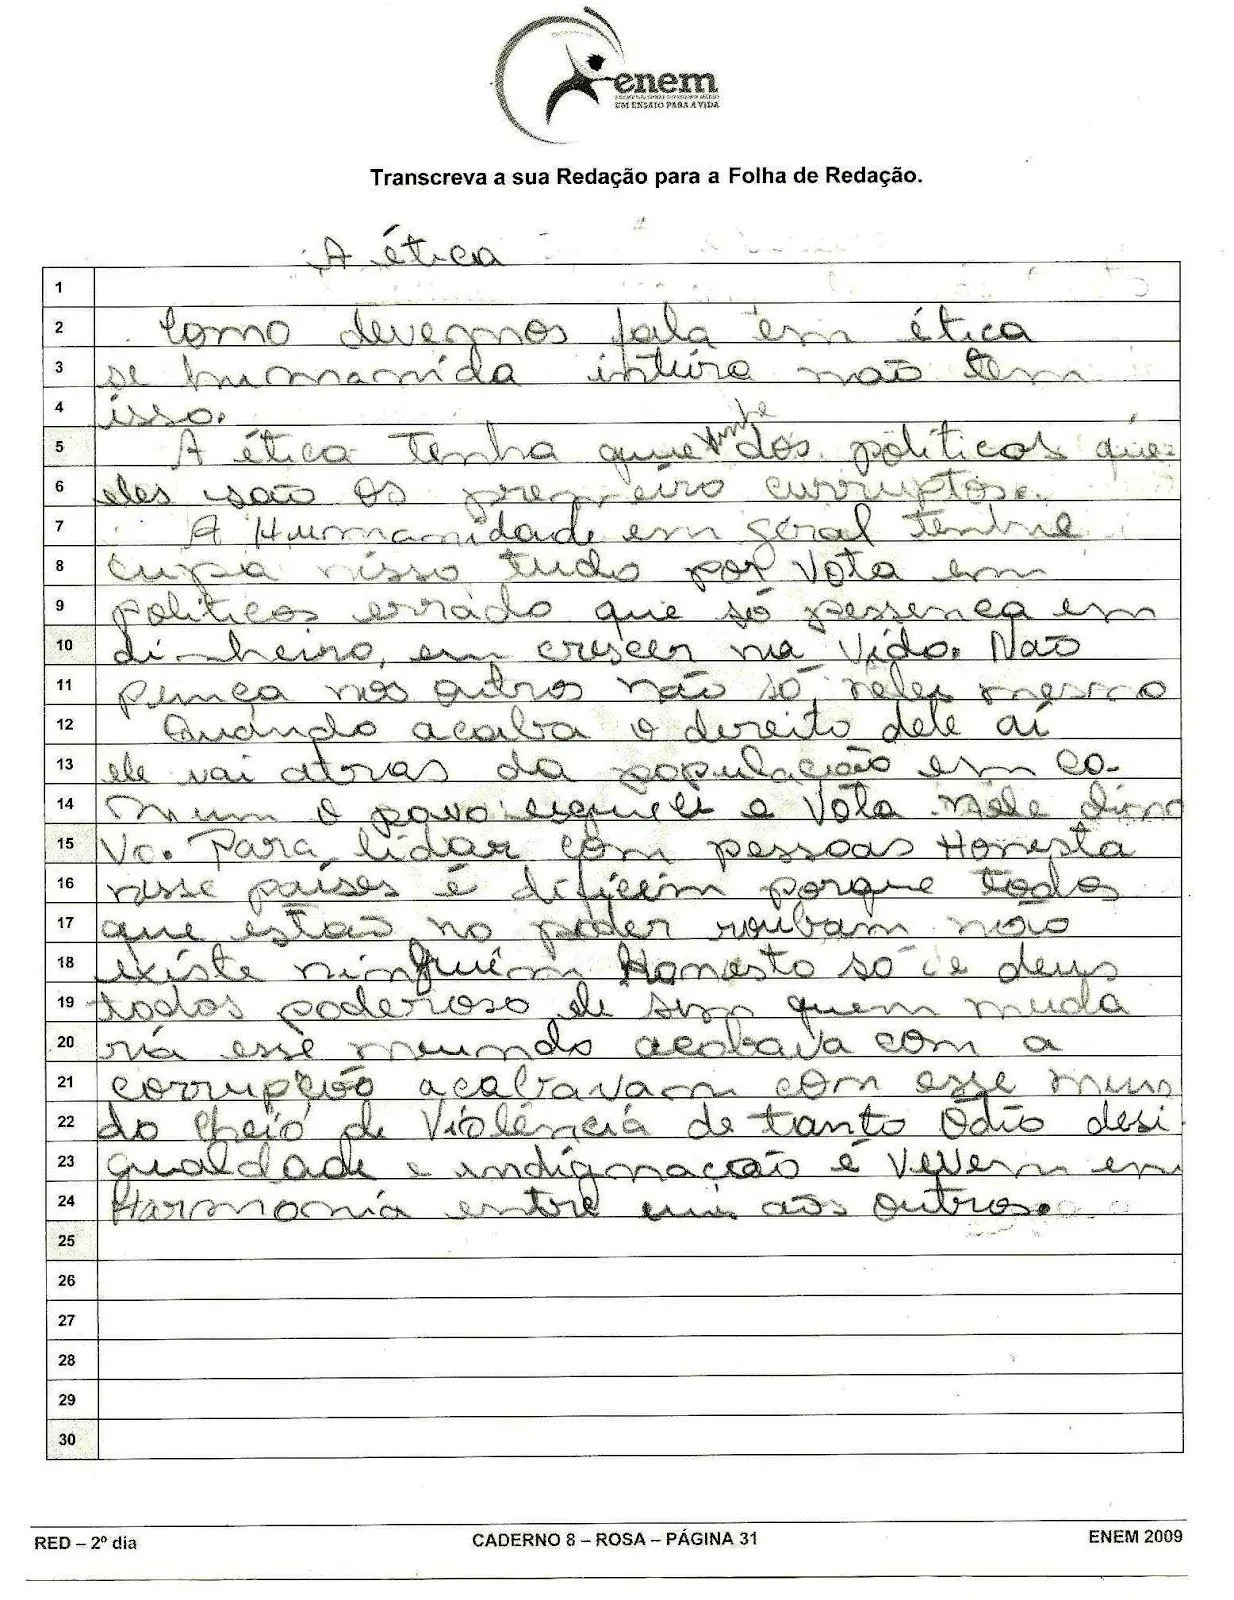 enem
UM ENSAIO PARA A VIDA
Transcreva a sua Redação para a Folha de Redação.
A ética
1
2 Como devemos fala em ética
3 se humanida inteira não tem
4 isso.
5 A ética tenha que vinhe dos politicos que
6 eles são os premeiro curruptos.
7 A Humanidade em geral tenhre
8 cupa nisso tudo por vota em
9 politicos errado que só pessença em
10 dinheiro, em crescer na vida. Não
11 pença nos outros não só neles mesmo
12 Quando acaba o direito dele aí
13 ele vai atras da população em co-
14 mum o povo esquece e vota nele dino
15 vo. Para lidar com pessoas Honesta
16 nesse países é dificim porque todos
17 que estão no poder roubam não
18 existe ninguim Honesto so é deus
19 todos poderoso ele sim quem muda
20 ria esse meundo acabava com a
21 corrupção acabavam com esse mun
22 do cheio de Violência de tanto Ódio desi
23 gualdade e indignação é vevem em
24 Harmonia entre uns aos outros.
25
26
27
28
29
30
RED – 2º dia
CADERNO 8 – ROSA – PÁGINA 31
ENEM 2009